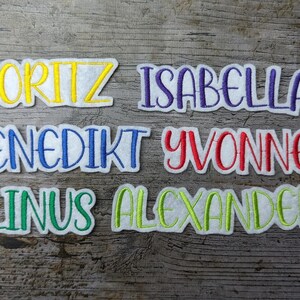 ORITZ ISABELLA
ENEDIKT YVONNE
LINUS ALEXANDE